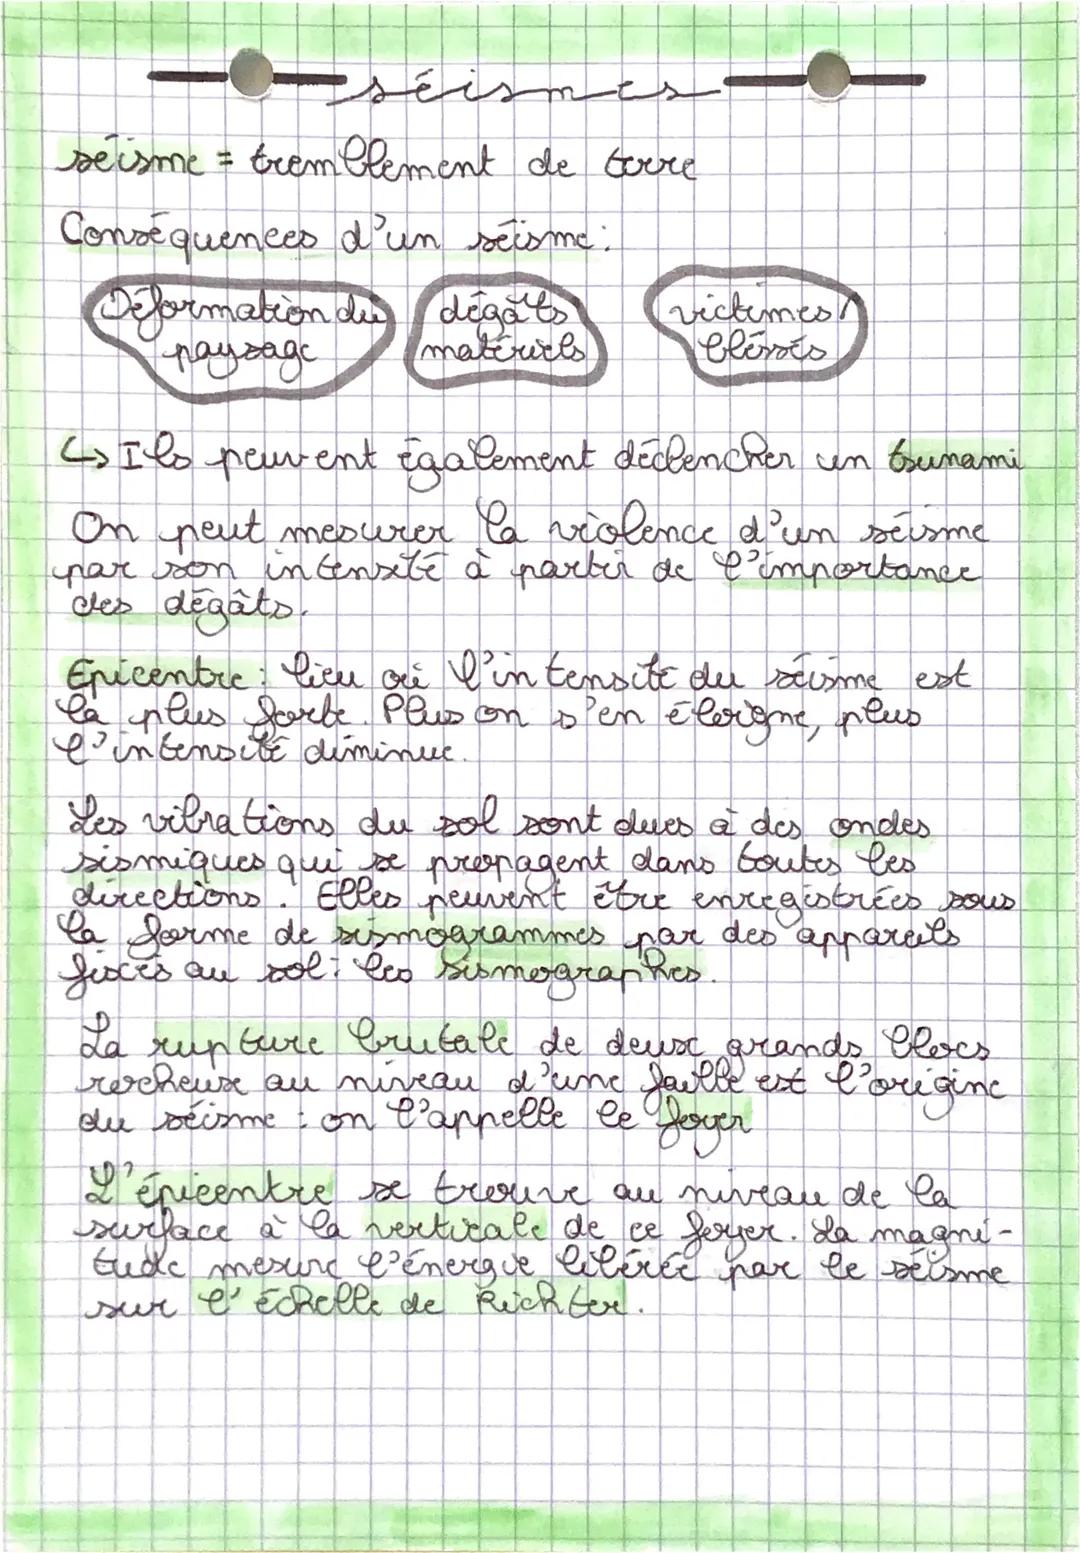 séismes
séisme = tremblement de terre
Conséquences d'un séisme :
Déformation du
paysage
dégâts
matériels
victimes/
bléssés
↳ Ils peuvent également déclencher un tsunami
On peut mesurer la violence d'un séisme
par son intensité à partir de l'importance
des dégâts.
Epicentre : lieu où l'intensité du séisme est
la plus forte. Plus on s'en éloigne, plus
l'intensité diminue.
Les vibrations du sol sont dues à des ondes
sismiques qui se propagent dans toutes les
directions. Elles peuvent être enregistrées sous
la forme de sismogrammes par des appareils
fixés au sol : les sismographes.
La rupture brutale de deux grands blocs
rocheux au niveau d'une faille est l'origine
du séisme : on l'appelle le foyer
L'épicentre se trouve au niveau de la
surface à la verticale de ce foyer. La magni-
tude mesure l'énergie libérée par le séisme
sur l'échelle de Richter.